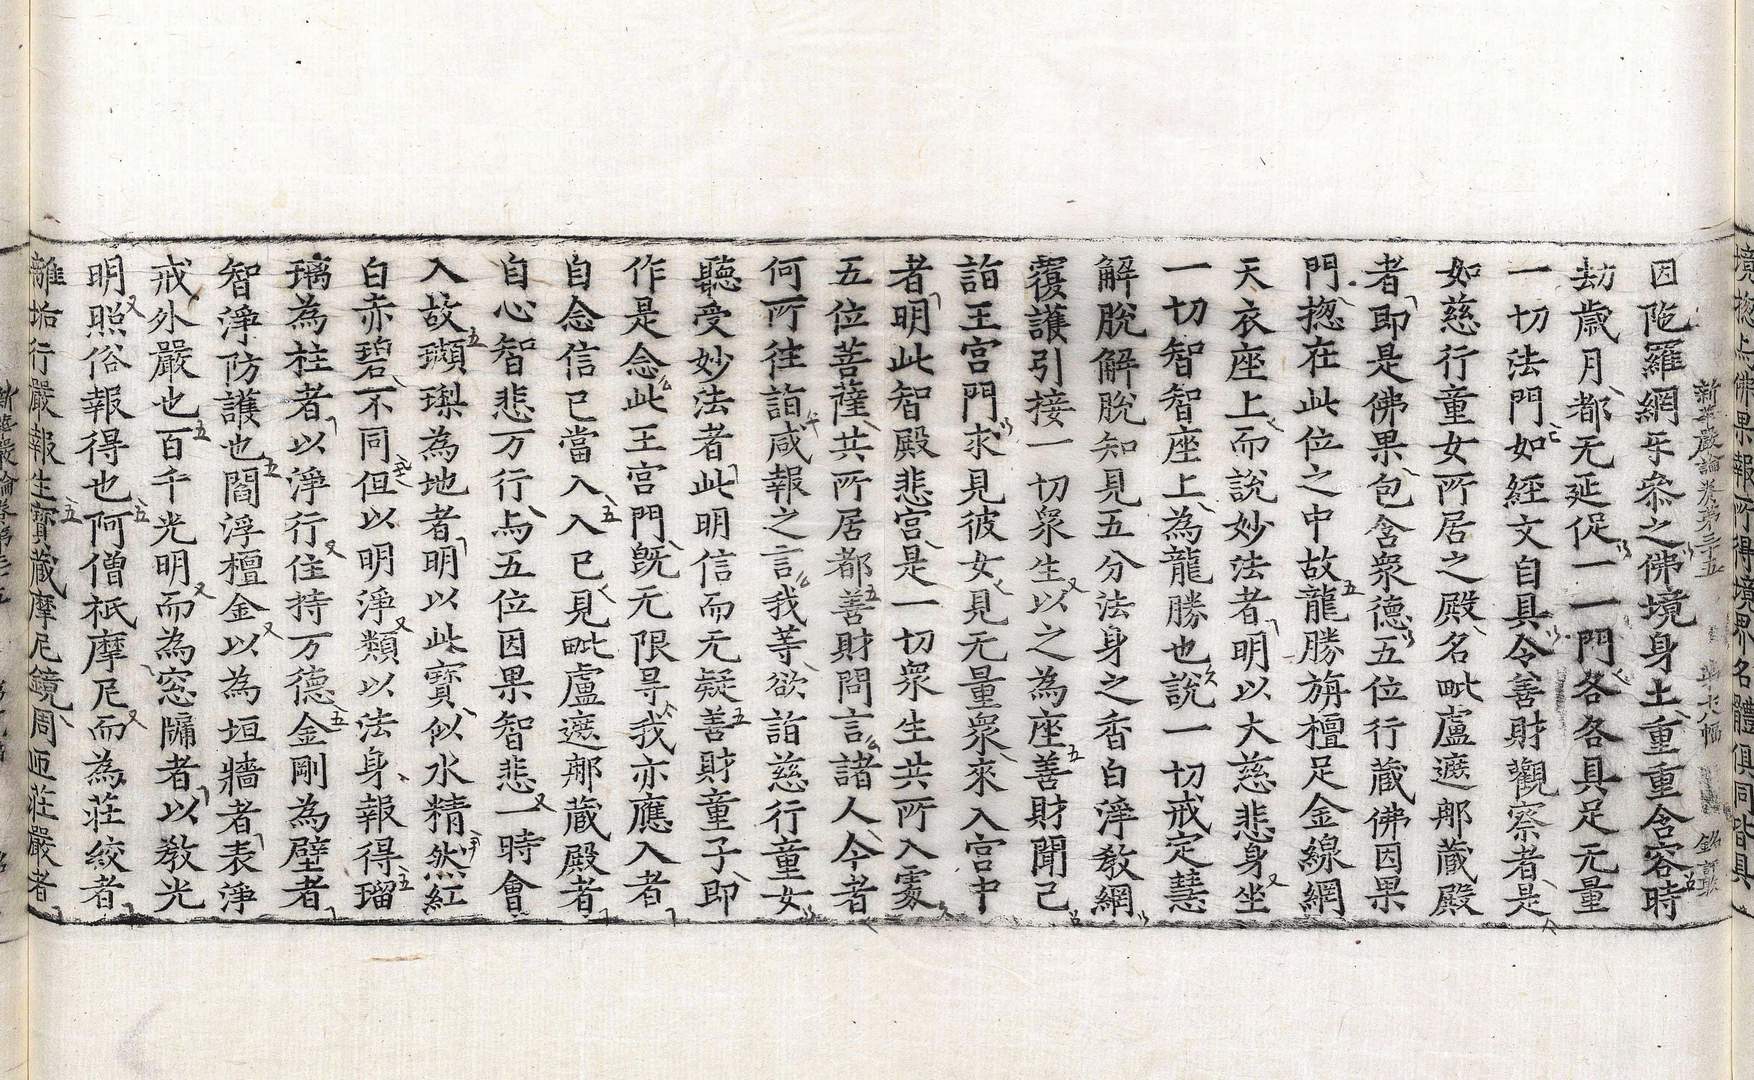 境揔是佛果報所得境界名體俱同皆具
新華嚴論卷第三十五
因陁羅網㸦叅之佛境身土重重含容時
劫歲月都无延促一一門各各具足无量
一切法門如經文自具令善財觀察者是
如慈行童女所居之殿名毗盧遮䣑藏殿
者即是佛果包含衆德五位行藏佛因果
門揔在此位之中故龍勝旃檀足金線網
天衣座上而說妙法者明以大慈悲身坐
一切智智座上為龍勝也說一切戒定慧
解脫解脫知見五分法身之香白淨敎網
覆護引接一切衆生以之為座善財聞已
詣王宮門求見彼女見无量衆來入宮中
者明此智殿悲宮是一切衆生共所入處
五位菩薩共所居都善財問言諸人今者
何所往詣咸報之言我等欲詣慈行童女
聽受妙法者此明信而无疑善財童子即
作是念此王宮門旣无限㝵我亦應入者
自念信已當入入已見毗盧遮䣑藏殿者
自心智悲万行与五位因果智悲一時會
入故玻瓈為地者明以此寶似水精然紅
白赤碧不同但以明淨類以法身報得瑠
璃為柱者以淨行住持万德金剛為壁者
智淨防護也閻浮檀金以為垣牆者表淨
戒外嚴也百千光明而為窓牖者以敎光
明照俗報得也阿僧祇摩尼而為莊絞者
離垢行嚴報生寶藏摩尼鏡周匝莊嚴者